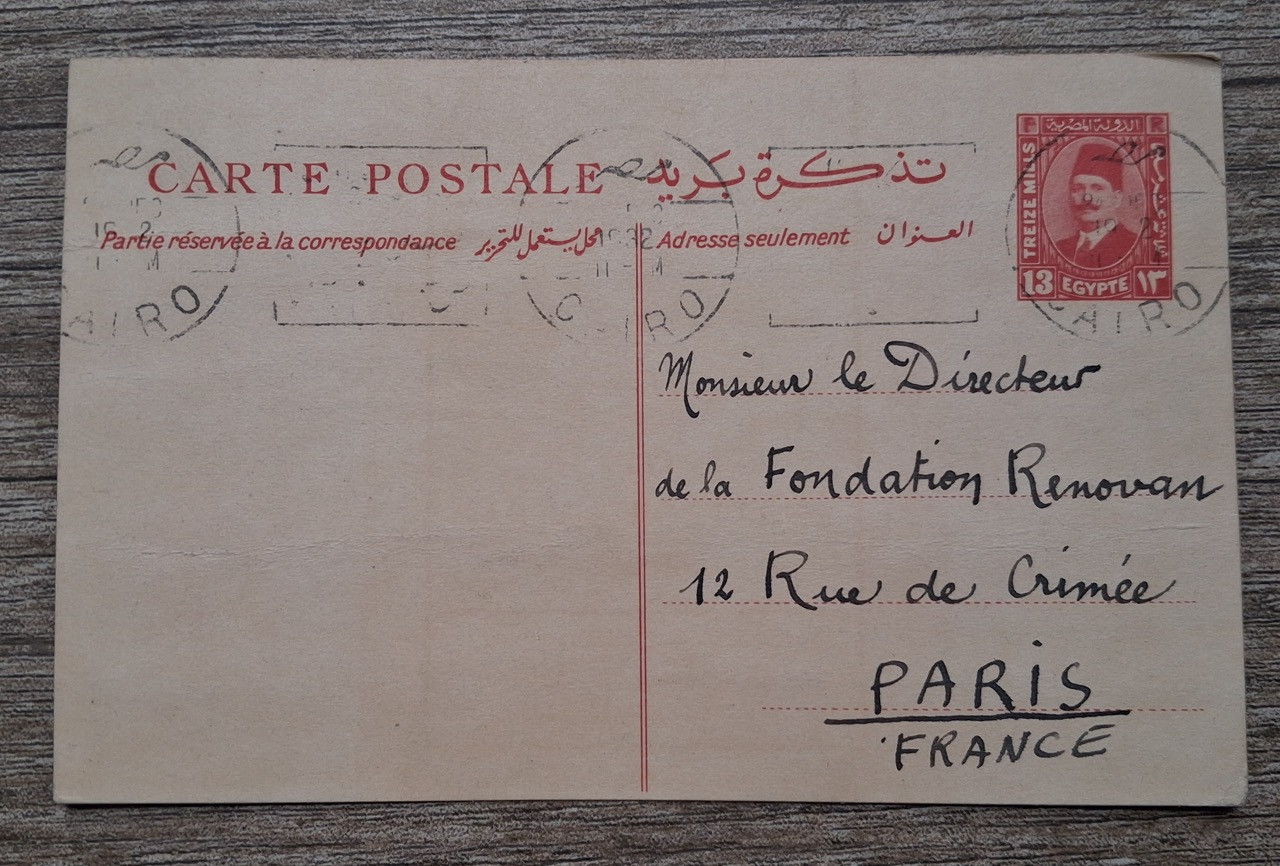 CARTE POSTALE تذكرة بريد
Partie réservée à la correspondance المحل يستعمل للتحرير
Adresse seulement العنوان
الدولة المصرية
TREIZE MILLS
13 EGYPTE ١٣
CAIRO
CAIRO
CAIRO
Monsieur le Directeur
de la Fondation Renovan
12 Rue de Crimée
PARIS
FRANCE